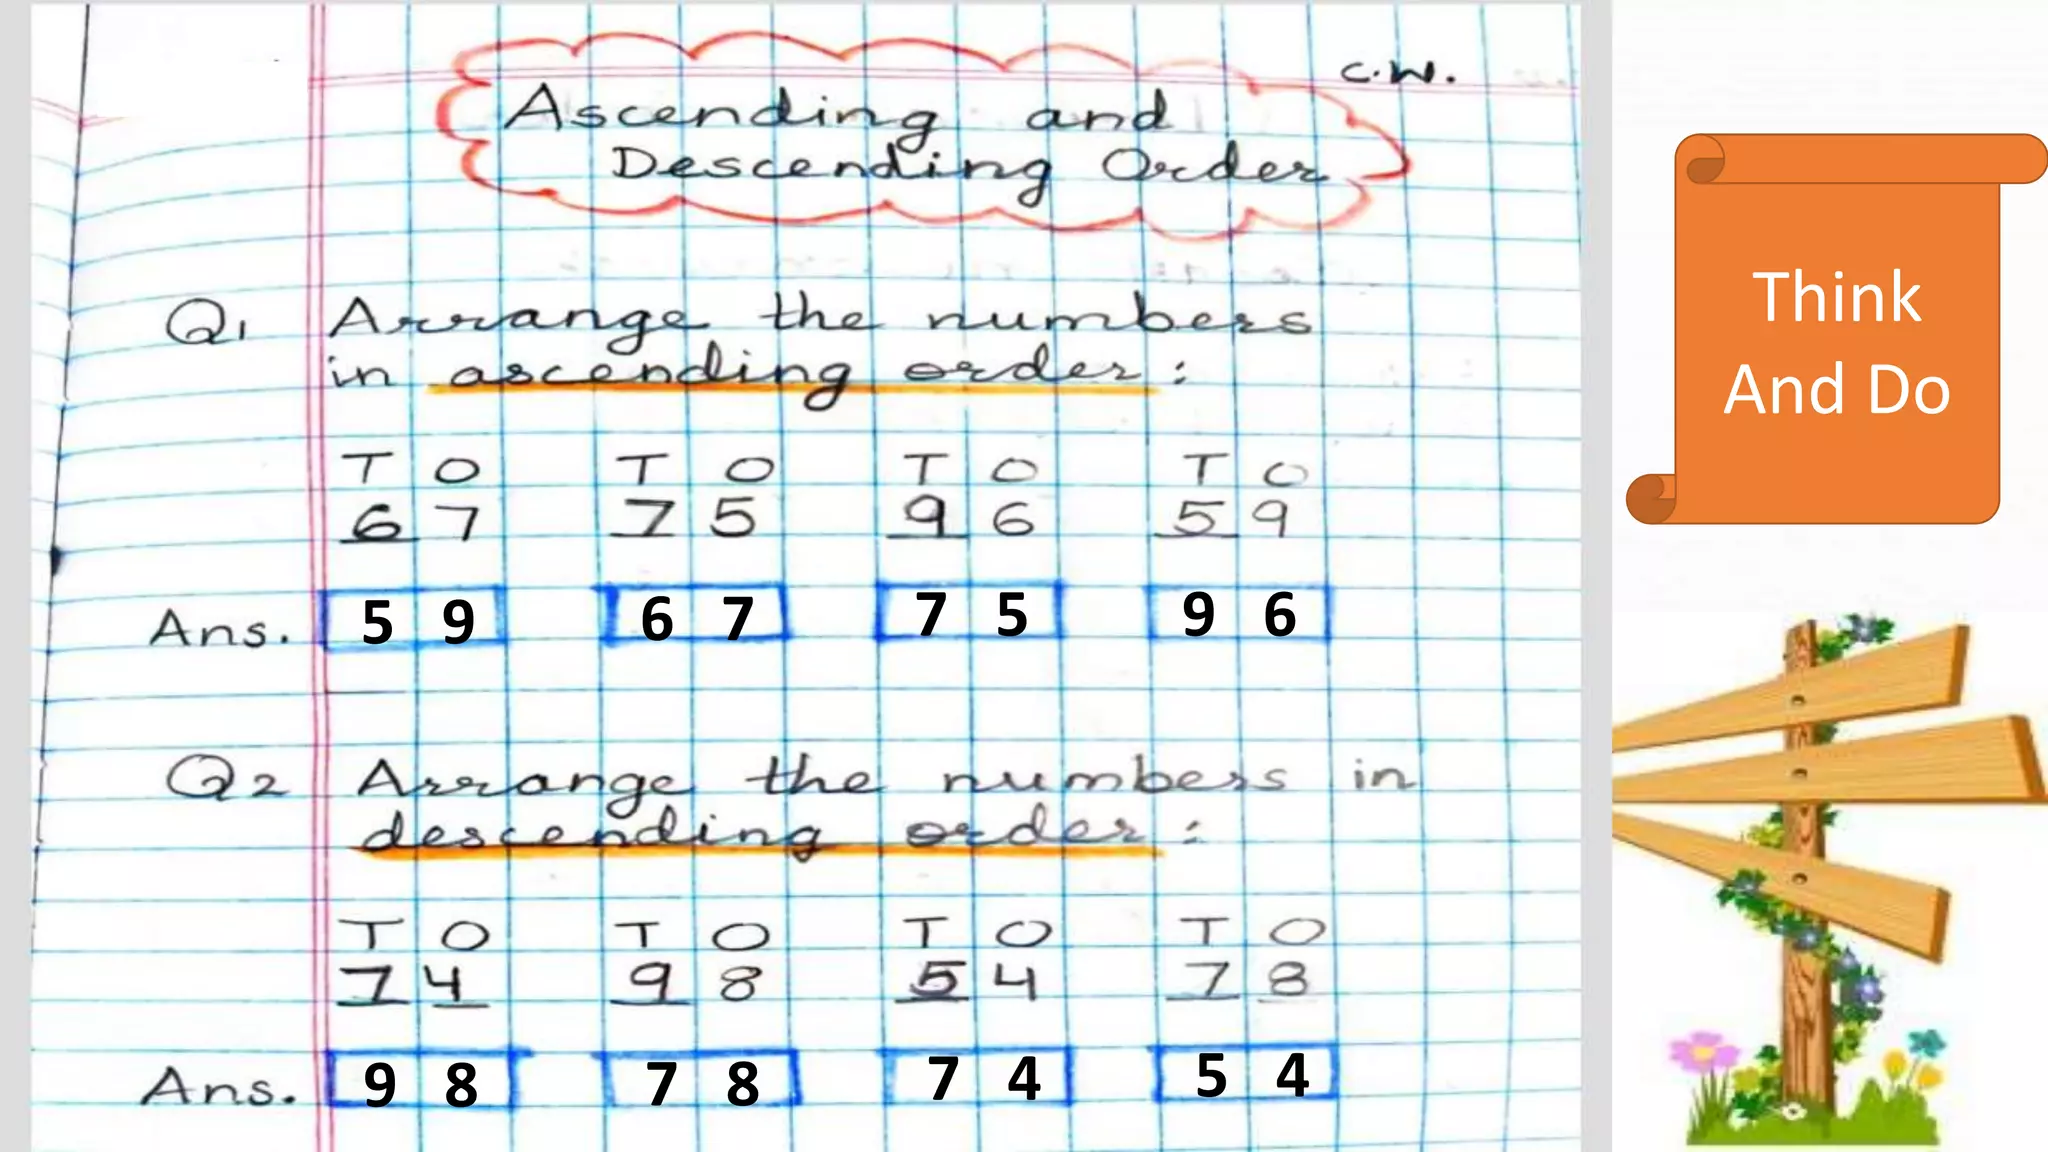 C.W.
Ascending and
Descending Order
Q1 Arrange the numbers
in ascending order:
T O T O T O T O
6 7 7 5 9 6 5 9
Ans. 5 9 6 7 7 5 9 6
Q2 Arrange the numbers in
descending order:
T O T O T O T O
7 4 9 8 5 4 7 8
Ans. 9 8 7 8 7 4 5 4
Think
And Do